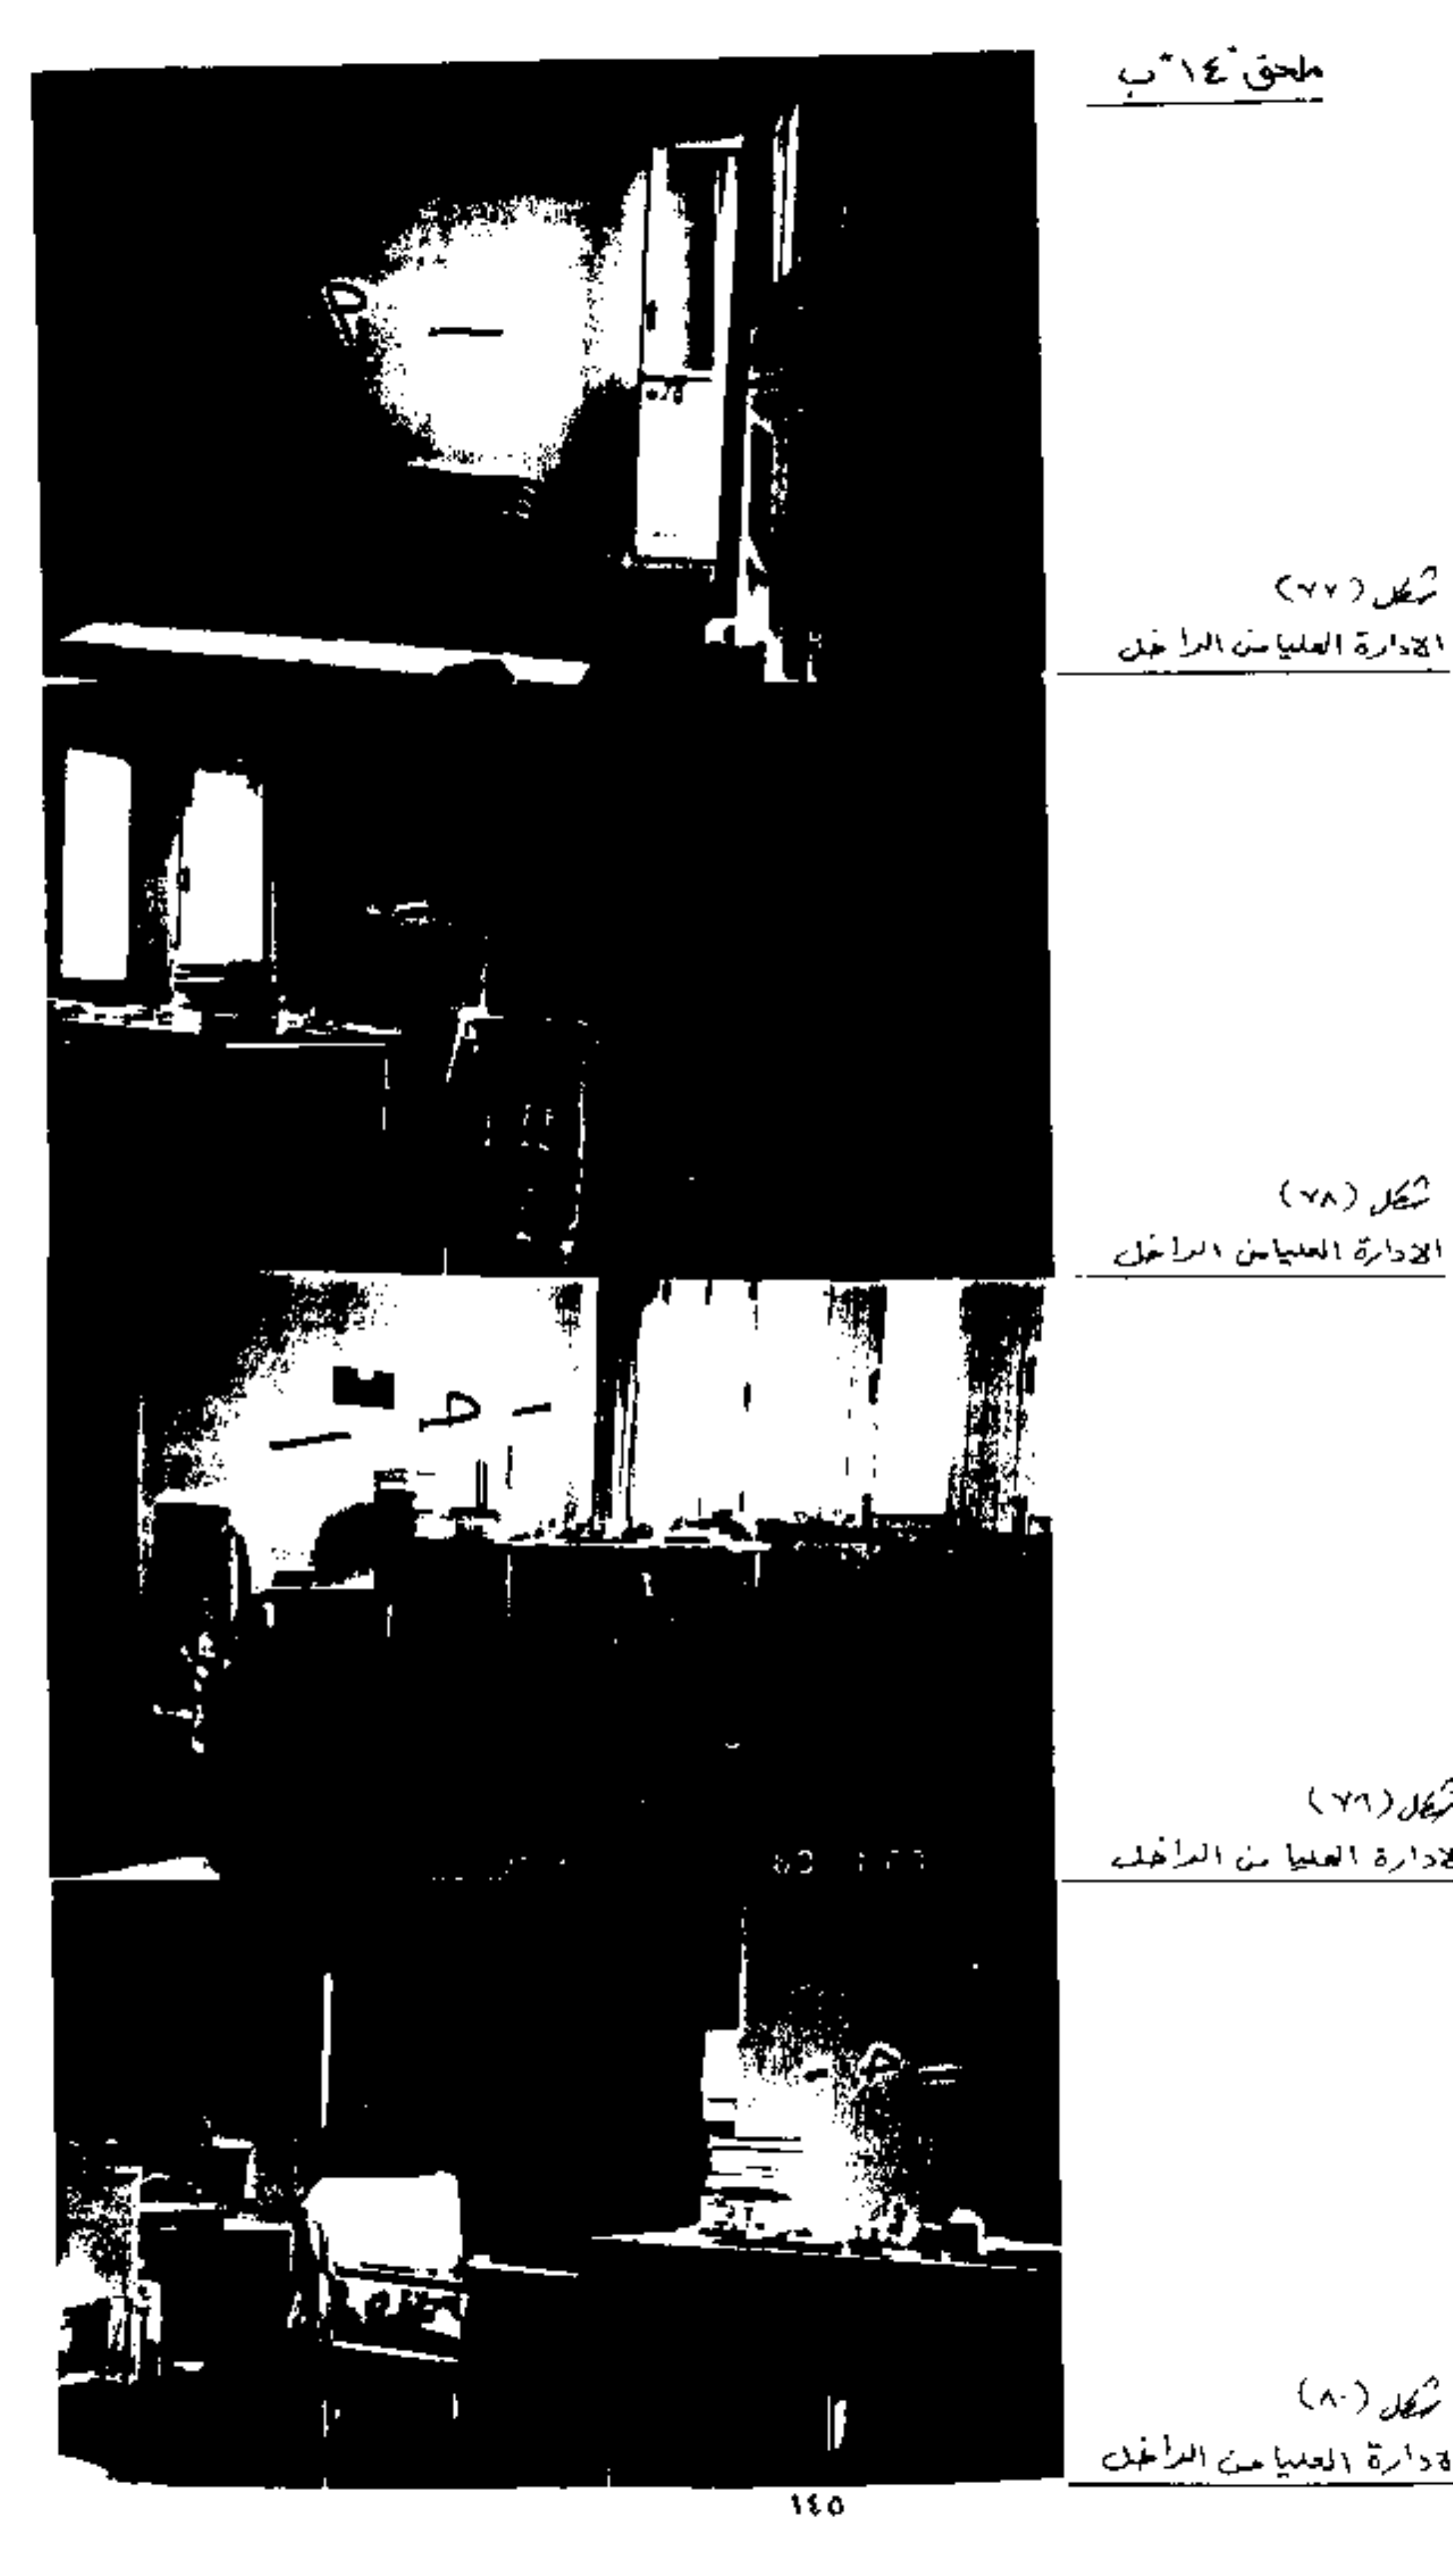 ملحق "١٤" ب
شكل (٧٧)
الادارة العليا من الداخل
شكل (٧٨)
الادارة العليا من الداخل
شكل (٧٩)
الادارة العليا من الداخل
شكل (٨٠)
الادارة العليا من الداخل
١٤٥